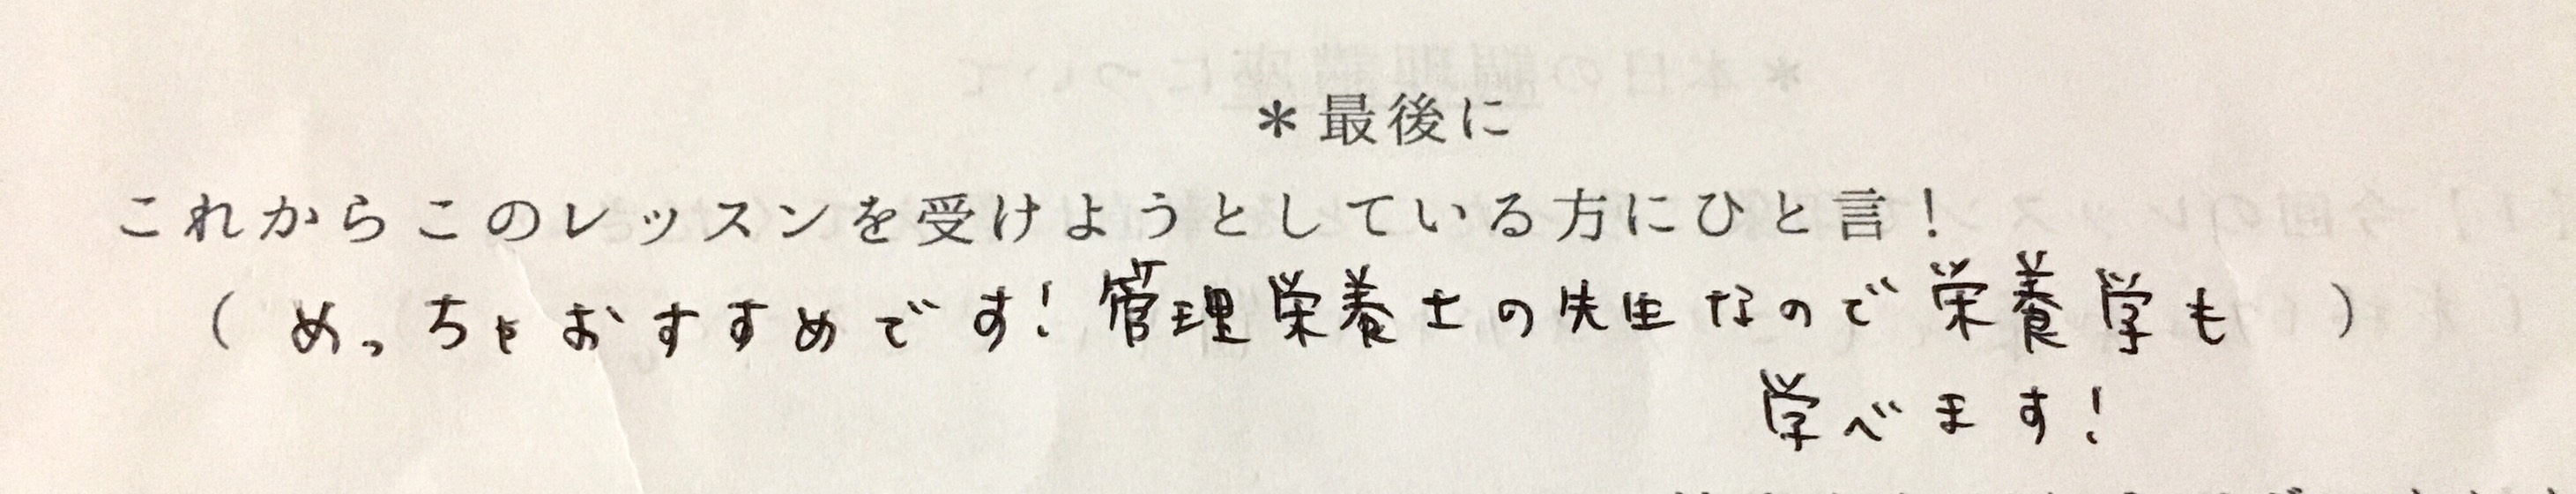 ＊最後に
これからこのレッスンを受けようとしている方にひと言！
（ めっちゃおすすめです！管理栄養士の先生なので栄養学も ）
学べます！